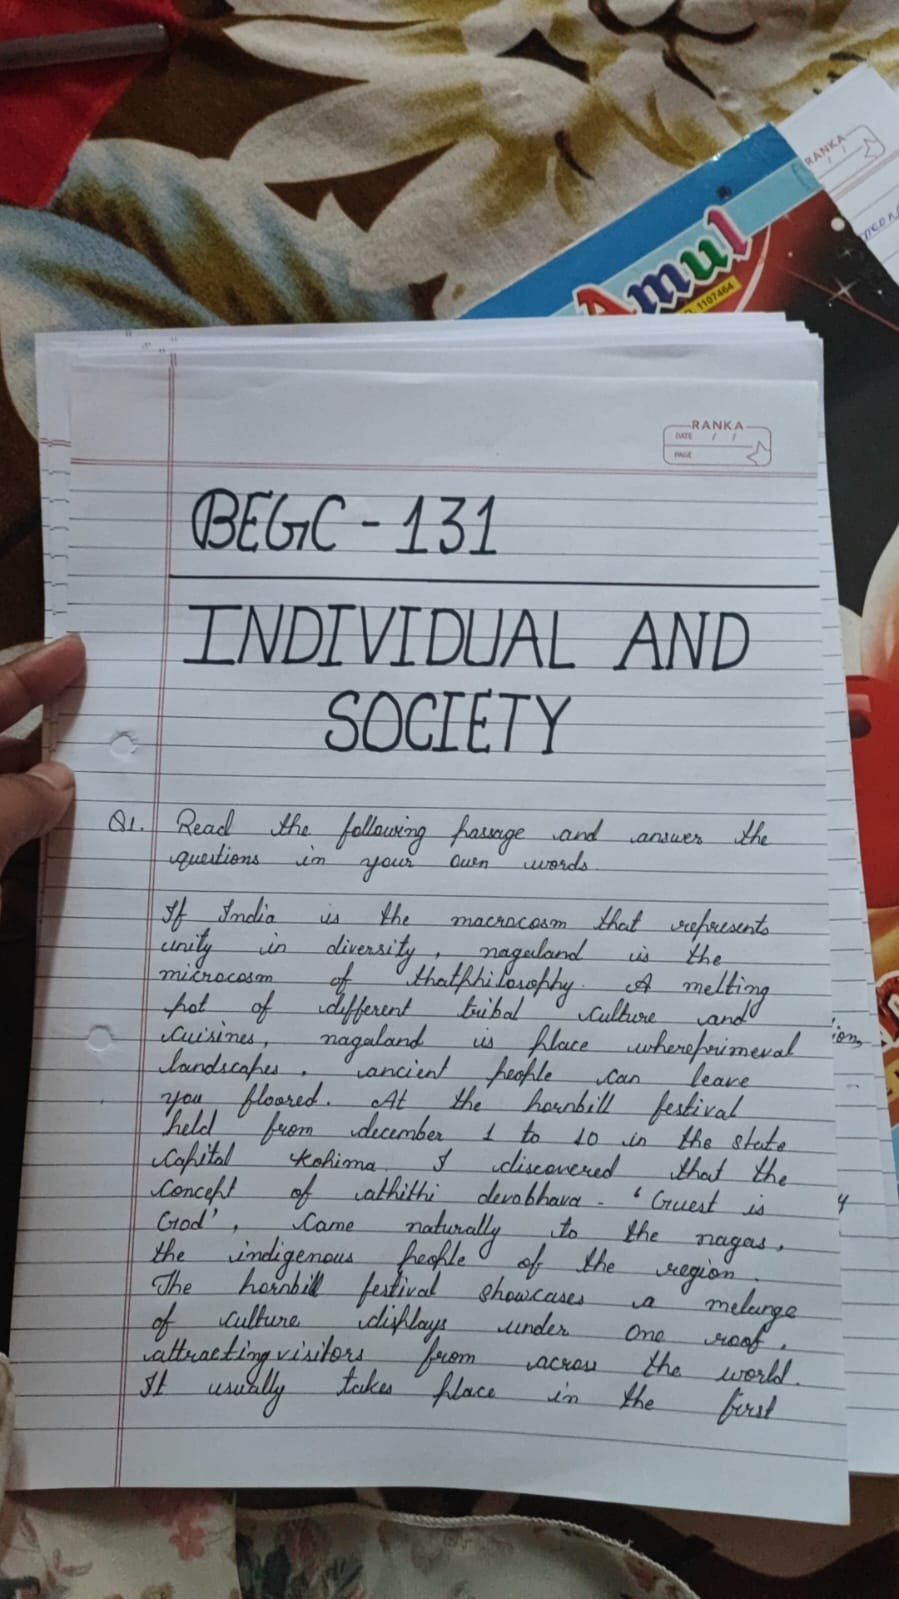 RANKA
Amul
1107464
RANKA
DATE / /
PAGE
BEGC - 131
INDIVIDUAL AND
SOCIETY
Q1. Read the following passage and answer the
questions in your own words.
If India is the macrocosm that represents
unity in diversity, nagaland is the
microcosm of thatphilosophy. A melting
pot of different tribal culture and
cuisines, nagaland is place whereprimeval
landscapes, ancient people can leave
you floored. At the hornbill festival
held from december 1 to 10 in the state
capital Kohima. I discovered that the
concept of athithi devobhava - 'Guest is
God', came naturally to the nagas,
the indigenous people of the region.
The hornbill festival showcases a melange
of culture displays under one roof,
attracting visitors from across the world.
It usually takes place in the first